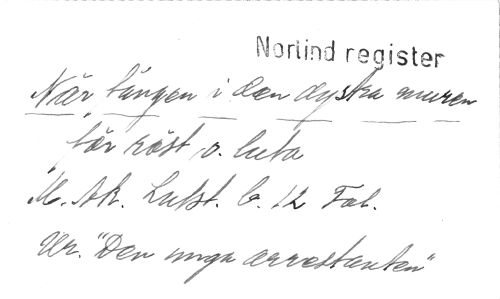 Norlind register
När fången i den dystra muren
för röst o. luta
M. Ak. Lutst. b. 12 Fol.
Ur. "Den unga arrestanten"